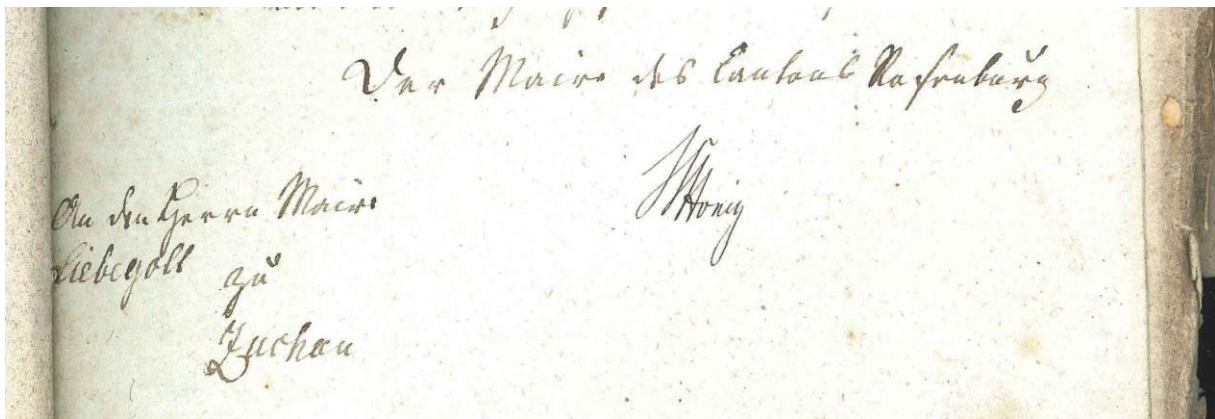 Der Maire des Cantons Rosenburg
An den Herrn Maire
Liebegott
zu
Zuchau